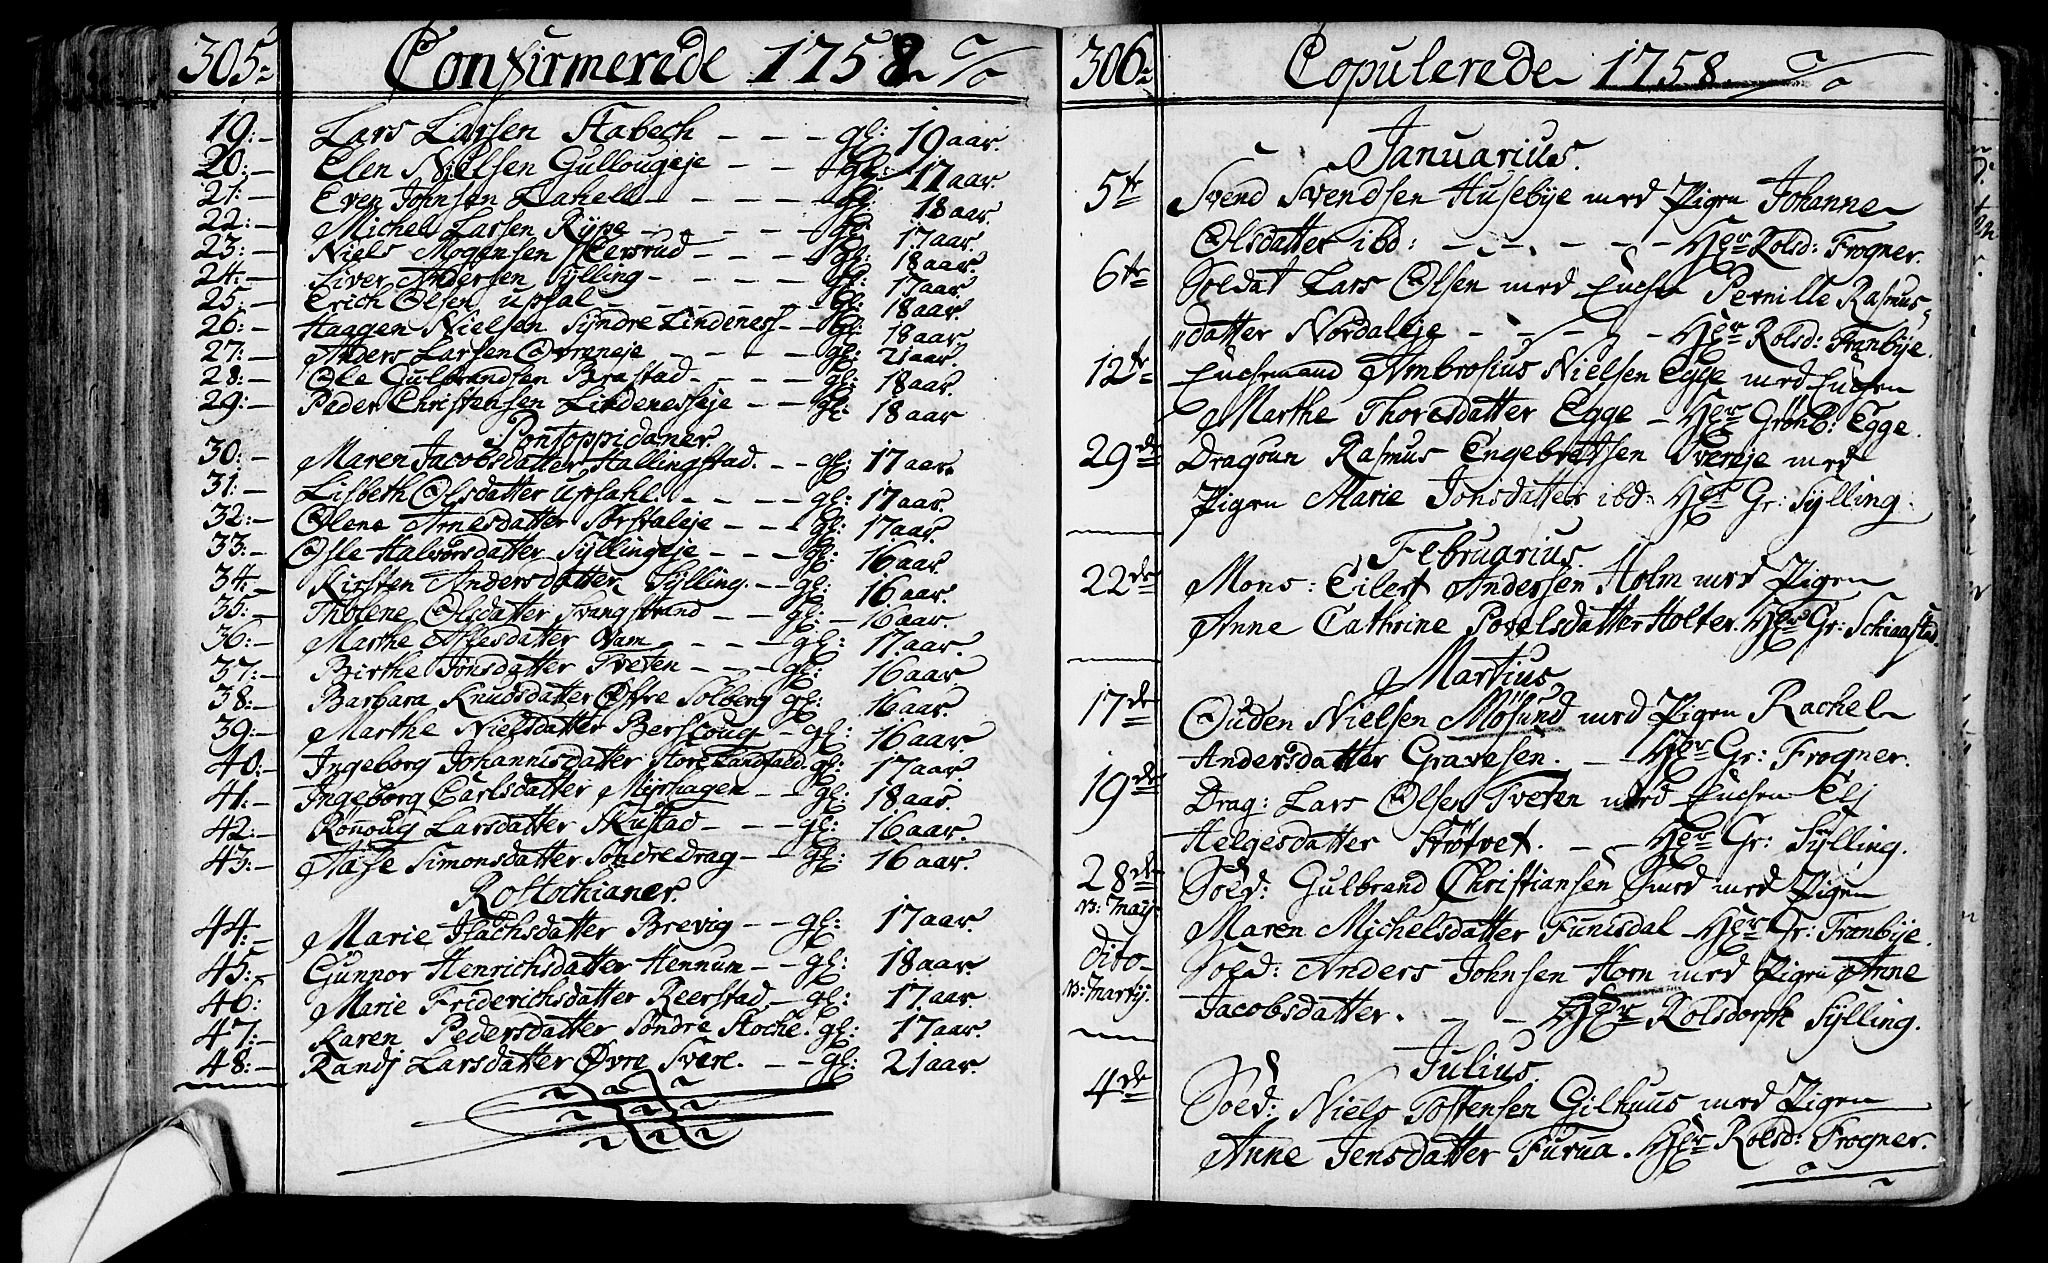 305
Confirmerede 1758
19: Lars Larsen Stabech - - - gl: 19 aar.
20: Elen Nielsen Gullougeje - - gl: 17 aar.
21: Even Johnsen Lahell - - - gl: 18 aar.
22: Michel Larsen Rype - - - gl: 17 aar.
23: Niels Mogensen - - - gl: 18 aar.
24: Siver Andersen Sylling - - - gl: 17 aar.
25: Erich Olsen Upsal - - - gl: 18 aar.
26: Haagen Nielsen Syndre Lindenes - - gl: 18 aar.
27: Anders Larsen Ovreneje - - - gl: 21 aar.
28: Ole Gulbrandsen Brastad - - - gl: 18 aar.
29: Peder Christensen Lindeneseje - - gl: 18 aar
Pontoppidaner.
30: Maren Jacobsdatter Hallingstad. - - gl: 17 aar.
31: Lisbeth Olsdatter Upsahl. - - - gl: 17 aar.
32: Olene Arnesdatter Sørstaleje - - - gl: 17 aar.
33: Halvorsdatter Syllingeje - - - gl: 16 aar.
34: Kirsten Andersdatter Sylling. - - gl: 16 aar.
35: Tholene Olsdatter Svangstrand - - gl: - 16 aar.
36: Marthe Aslesdatter Vam - - - gl: 17 aar.
37: Birthe Jonsdatter Tveten - - - gl: 16 aar.
38: Barbara Knudsdatter Øfre Solberg gl: 16 aar.
39: Marthe Nielsdatter Berscoug - gl: 16 aar.
40: Ingeborg Johannisdatter Store Landfald. gl: 17 aar.
41: Ingeborg Carlsdatter Myrhagen - - gl: 18 aar.
42: Rønoug Larsdatter Skustad - - - gl: 16 aar.
43: Aase Simonsdatter Søndre Drag - - gl: 16 aar.
Rostochianer.
44: Marie Isachsdatter Brevig - - gl: 17 aar.
45: Gunnor Henrichsdatter Hennum - - gl: 18 aar.
46: Marie Friderichsdatter Reerstad. - gl: 17 aar.
47: Karen Pedersdatter Søndre Stoche. gl: 17 aar.
48: Randj Larsdatter Øvre Svere. - - gl: 21 aar.
306
Copulerede 1758.
Januarius.
5te Svend Svendsen Husebye med Pigen Johanne
Olsdatter ibd: - - - - - Hr Rolsd: Frogner.
6te Soldat Lars Olsen med Enchen Pernille Rasmus-
datter Nordaleje - - - - Hr Rolsd: Tranbye.
12te Enchemand Ambrosius Nielsen Egge med Enchen
Marthe Thoresdatter Egge - Hr Grønb: Egge.
29de Dragoun Rasmus Engebretsen Svereje med
Pigen Marie Jonsdatter ibd: Hr Gr: Sylling.
Februarius.
22de Mons: Eilert Andersen Holm med Pigen
Anne Cathrine Povelsdatter Holter. Hr Gr: Schiaastad.
Martius
17de Ouden Nielsen Møsund med Pigen Rachel
Andersdatter Gravesen. - Hr Gr: Frogner.
19de Drag: Lars Olsen Tveten med Enchen Elj
Helgesdatter Strøtvet. - - Hr Gr: Sylling.
28de Sold: Gulbrand Christiansen med Pigen
n: Maij.
Maren Michelsdatter Funisdal Hr Gr: Tranbye.
dito Sold: Anders Johnsen Horn med Pigen Anne
n: Martij.
Jacobsdatter. - - - Hr Rolsdorph Sylling.
Julius.
4de Sold: Niels Tostensen Gilhuus med Pigen
Anne Jensdatter Furua. Hr Rolsd: Frogner.